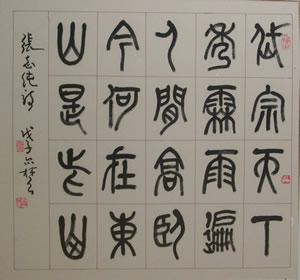 岱宗天下
秀霖雨遍
人間高臥
今何在東
山是此山
張志純詩 戊子